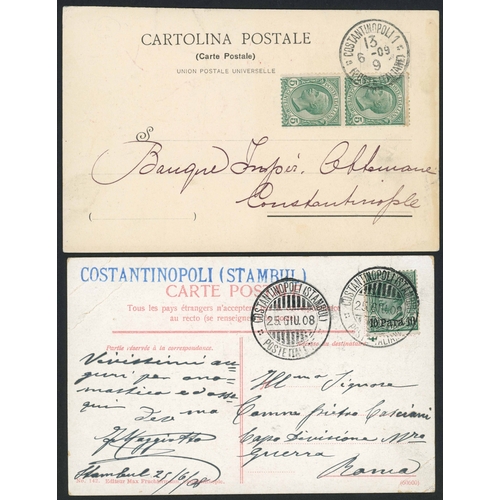 CARTOLINA POSTALE
(Carte Postale)
UNION POSTALE UNIVERSELLE
COSTANTINOPOLI 1
13
6 -09
9
(POSTE ITALIANE)
S
Banque Impér. Ottomane
Constantinople
COSTANTINOPOLI (STAMBUL)
CARTE POSTALE
Tous les pays étrangers n'acceptent
au recto (se renseigner
COSTANTINOPOLI (STAMBUL)
25.GIU.08
POSTE ITALIANE
10 Para 10
Partie réservée à la correspondance.
destination.
Vivissimi au
guri per ono
mastico
Stambul 25/6/08
Ill.ma Signora
Comm. Pietro
Capo Divisione
Guerra
Roma
Editeur Max Fruchtermann